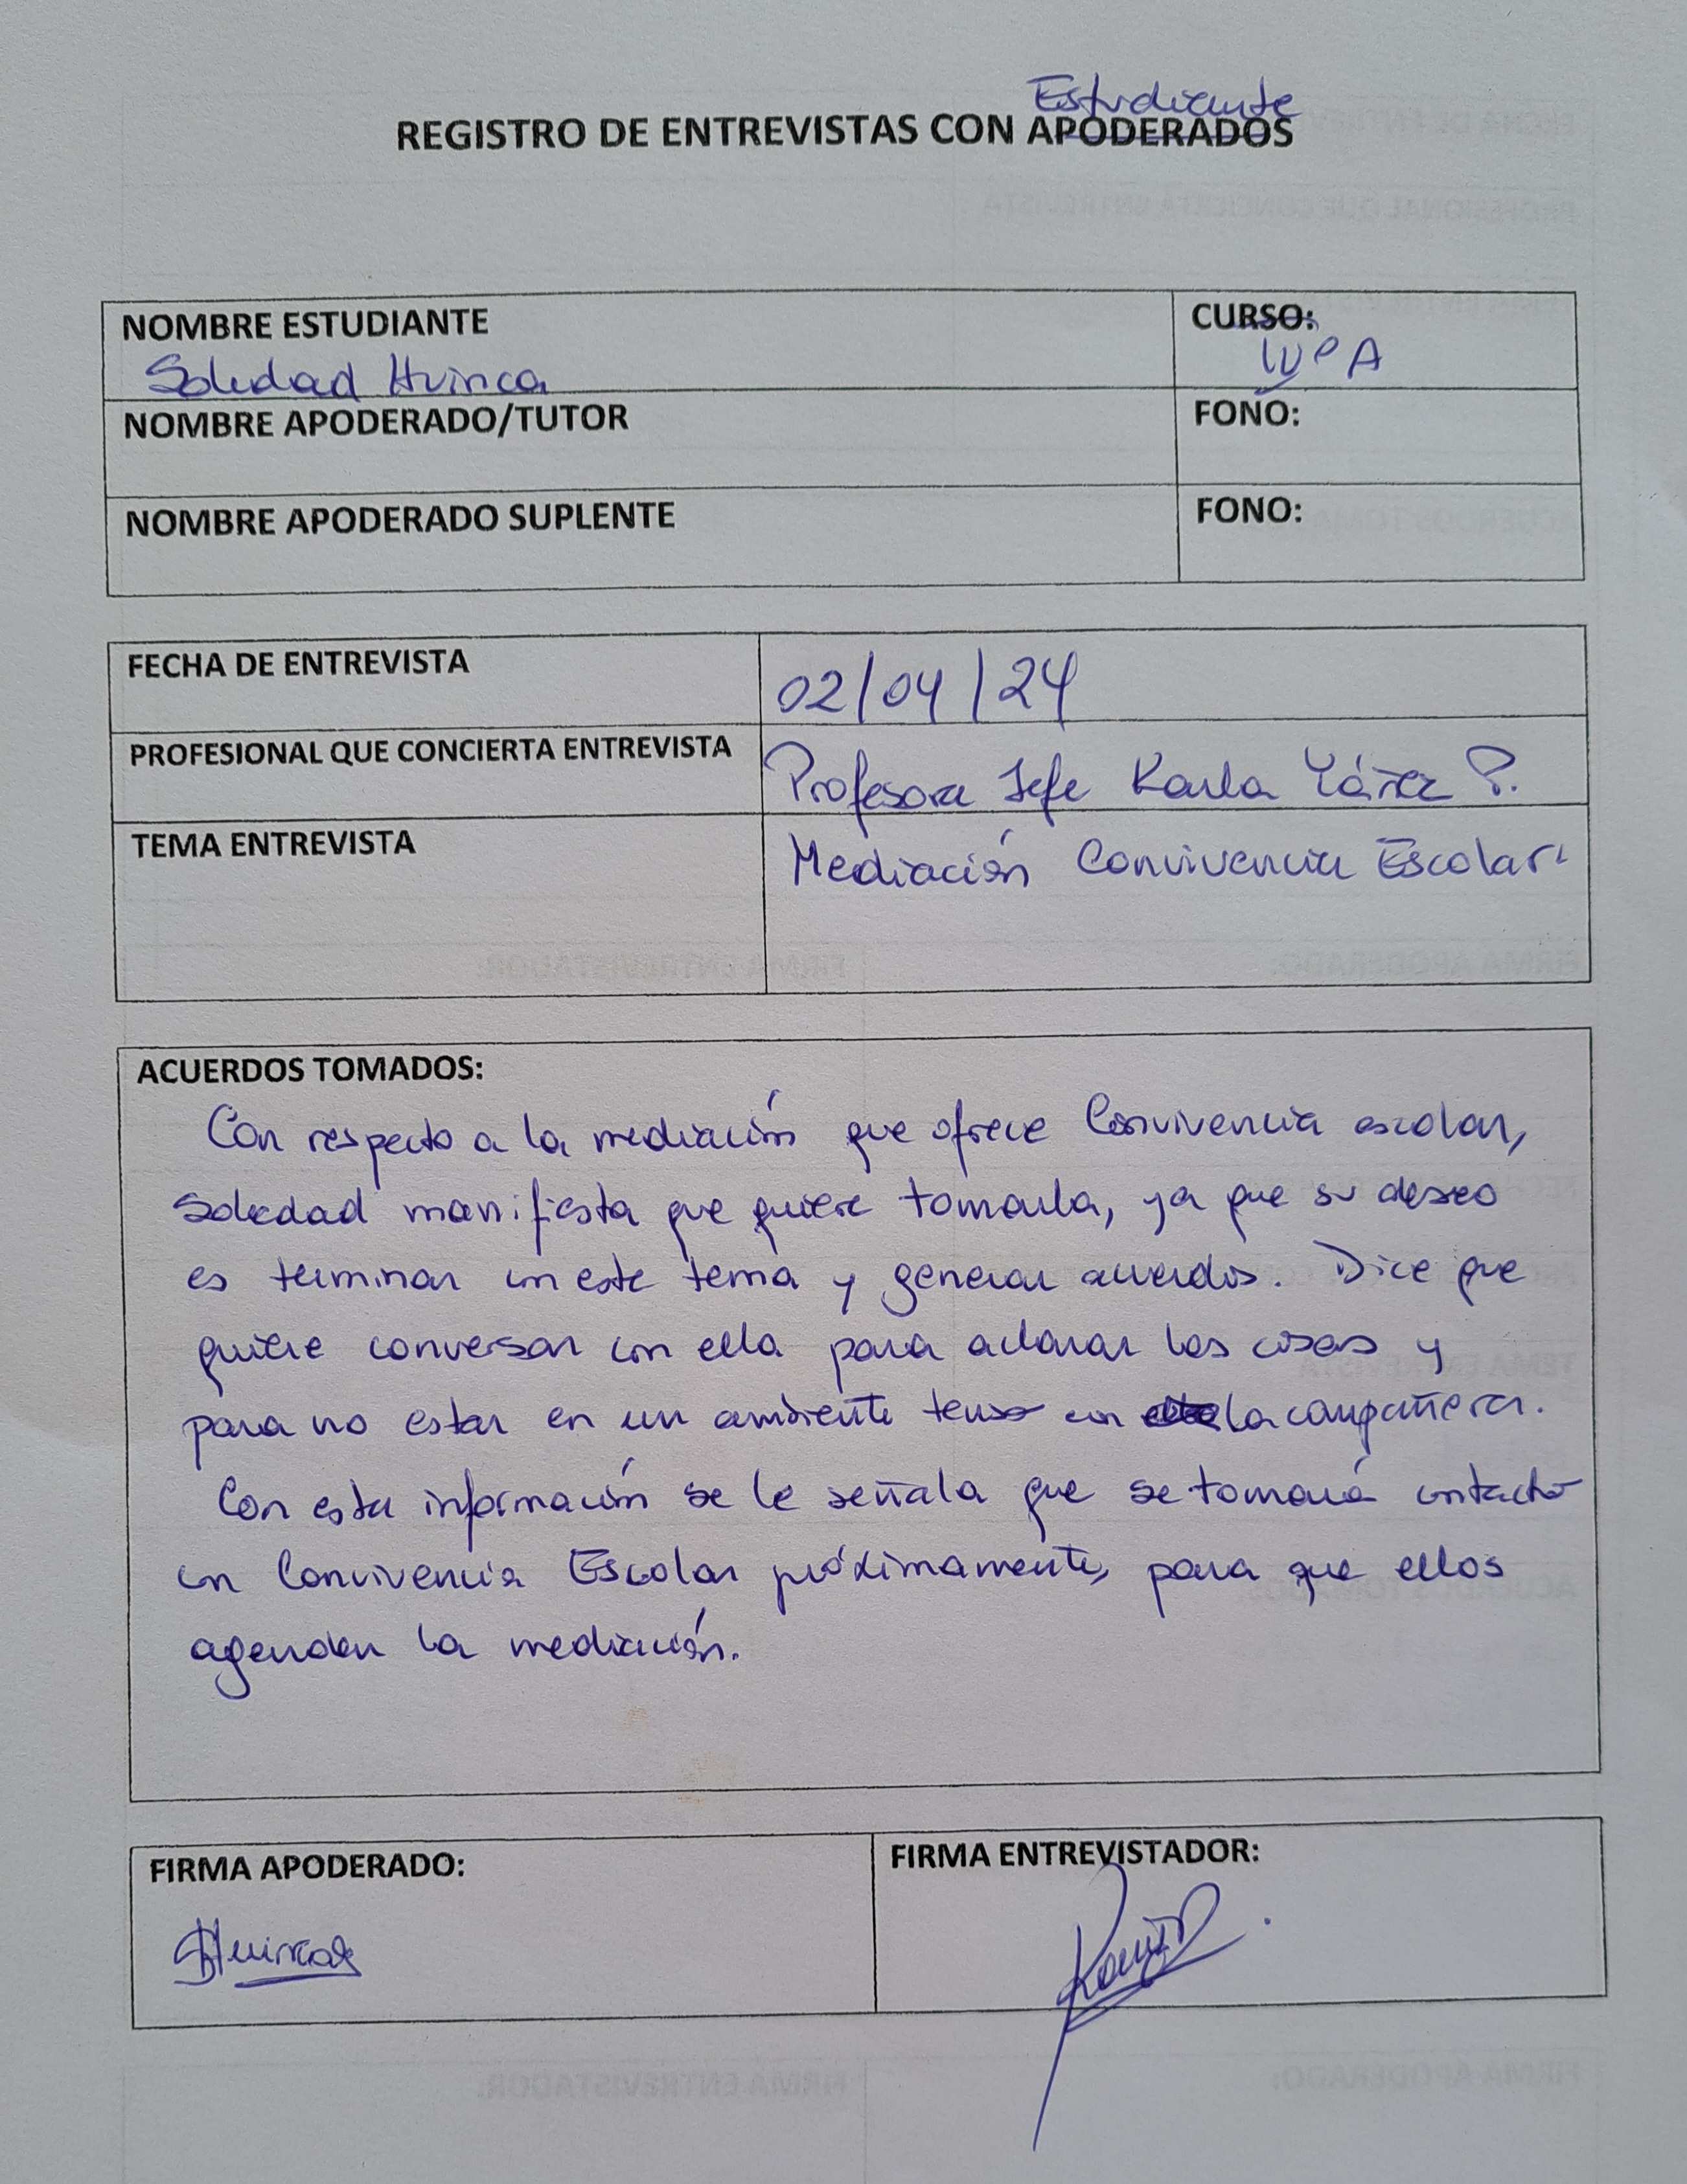 Estudiante
REGISTRO DE ENTREVISTAS CON APODERADOS
NOMBRE ESTUDIANTE
Soledad Huinca
CURSO:
IVº A
NOMBRE APODERADO/TUTOR
FONO:
NOMBRE APODERADO SUPLENTE
FONO:
FECHA DE ENTREVISTA
02/04/24
PROFESIONAL QUE CONCIERTA ENTREVISTA
Profesora Jefe Karla Yáñez P.
TEMA ENTREVISTA
Mediación Convivencia Escolar.
ACUERDOS TOMADOS:
Con respecto a la mediación que ofrece Convivencia escolar,
Soledad manifiesta que quiere tomarla, ya que su deseo
es terminar con este tema y generar acuerdos. Dice que
quiere conversar con ella para aclarar las cosas y
para no estar en un ambiente tenso con la compañera.
Con esta información se le señala que se tomará contacto
con Convivencia Escolar próximamente, para que ellos
agenden la mediación.
FIRMA APODERADO:
SHuinca
FIRMA ENTREVISTADOR: